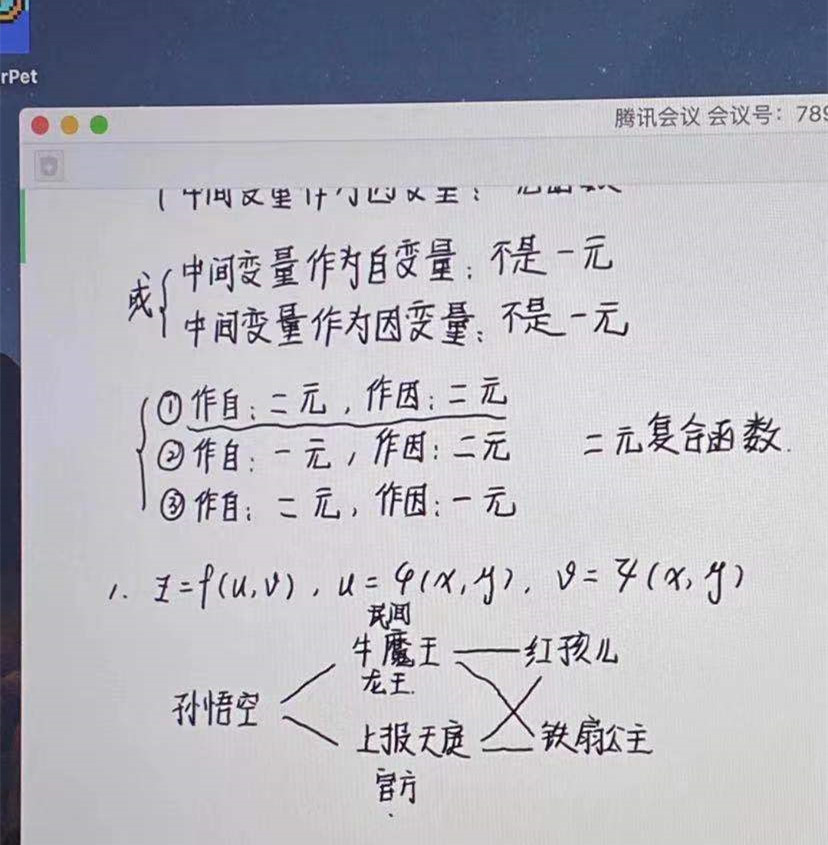 rPet
腾讯会议 会议号：789
中间变量作为因变量：
或{中间变量作为自变量：不是一元
中间变量作为因变量：不是一元
①作自：二元，作因：二元
②作自：一元，作因：二元 二元复合函数.
③作自：二元，作因：一元
1. z=f(u,v), u=φ(x,y), v=ψ(x,y)
民间
牛魔王 红孩儿
龙王.
孙悟空
上报天庭 铁扇公主
官方